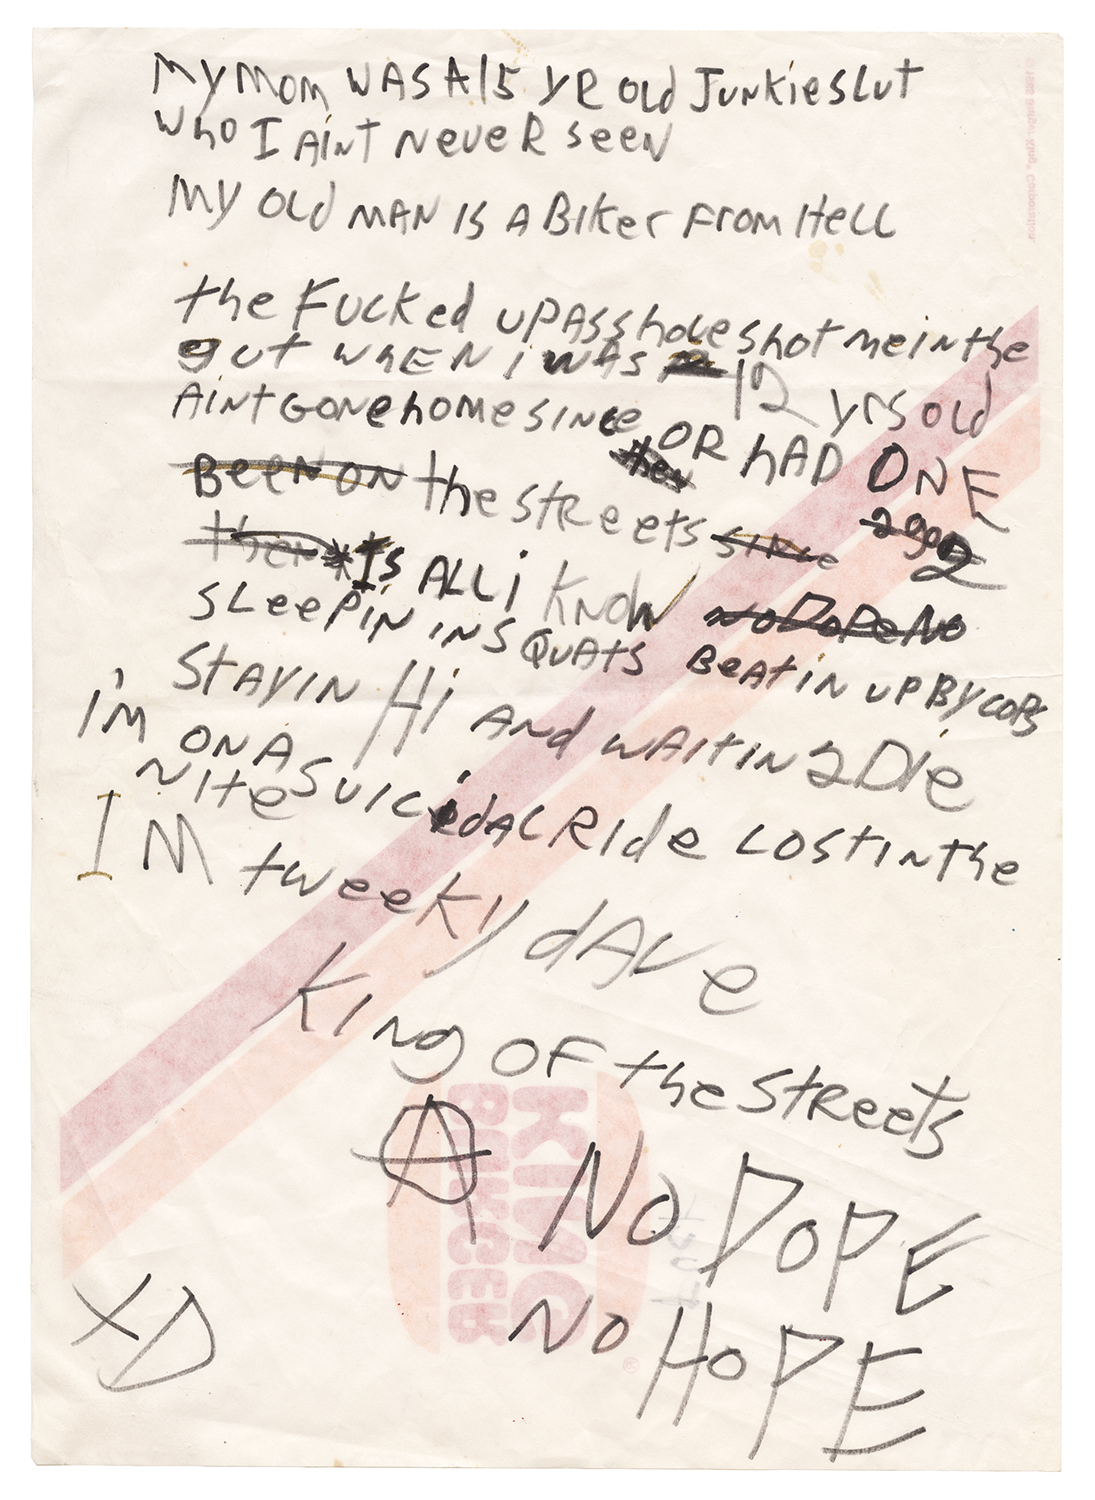 My Mom WAS A 15 YR old Junkie slut
who I Aint Never seen
My Old MAN IS A Biker From Hell
the Fucked up Asshole shot me in the
gut wHEN i was 12 yrs old
Aint Gone home Since OR hAD ONE
Been on the streets since 2 go 2
then Is ALL i KNOW No Dope No
SLeepin iN SQuats BeAtin up By cops
Stayin Hi And waitin 2 Die
i'm ON A Suicidal Ride Lost in the
Nite
I'M tweeky dAve
King OF the Streets
Ⓐ NO DOPE
NO HOPE
XD
© Burger King® Corporation.
BURGER
KING
®